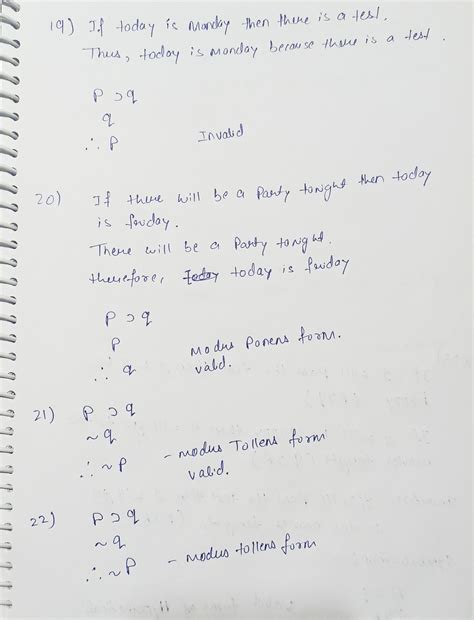 19) If today is Monday then there is a test.
Thus, today is Monday because there is a test.
P ⊃ q
q
∴ P Invalid
20) If there will be a Party tonight then today
is friday.
There will be a Party tonight.
therefore, today is friday
P ⊃ q
P Modus Ponens form.
∴ q valid.
21) P ⊃ q
~q
∴ ~P - modus Tollens form
valid.
22) P ⊃ q
~q
∴ ~P - modus tollens form